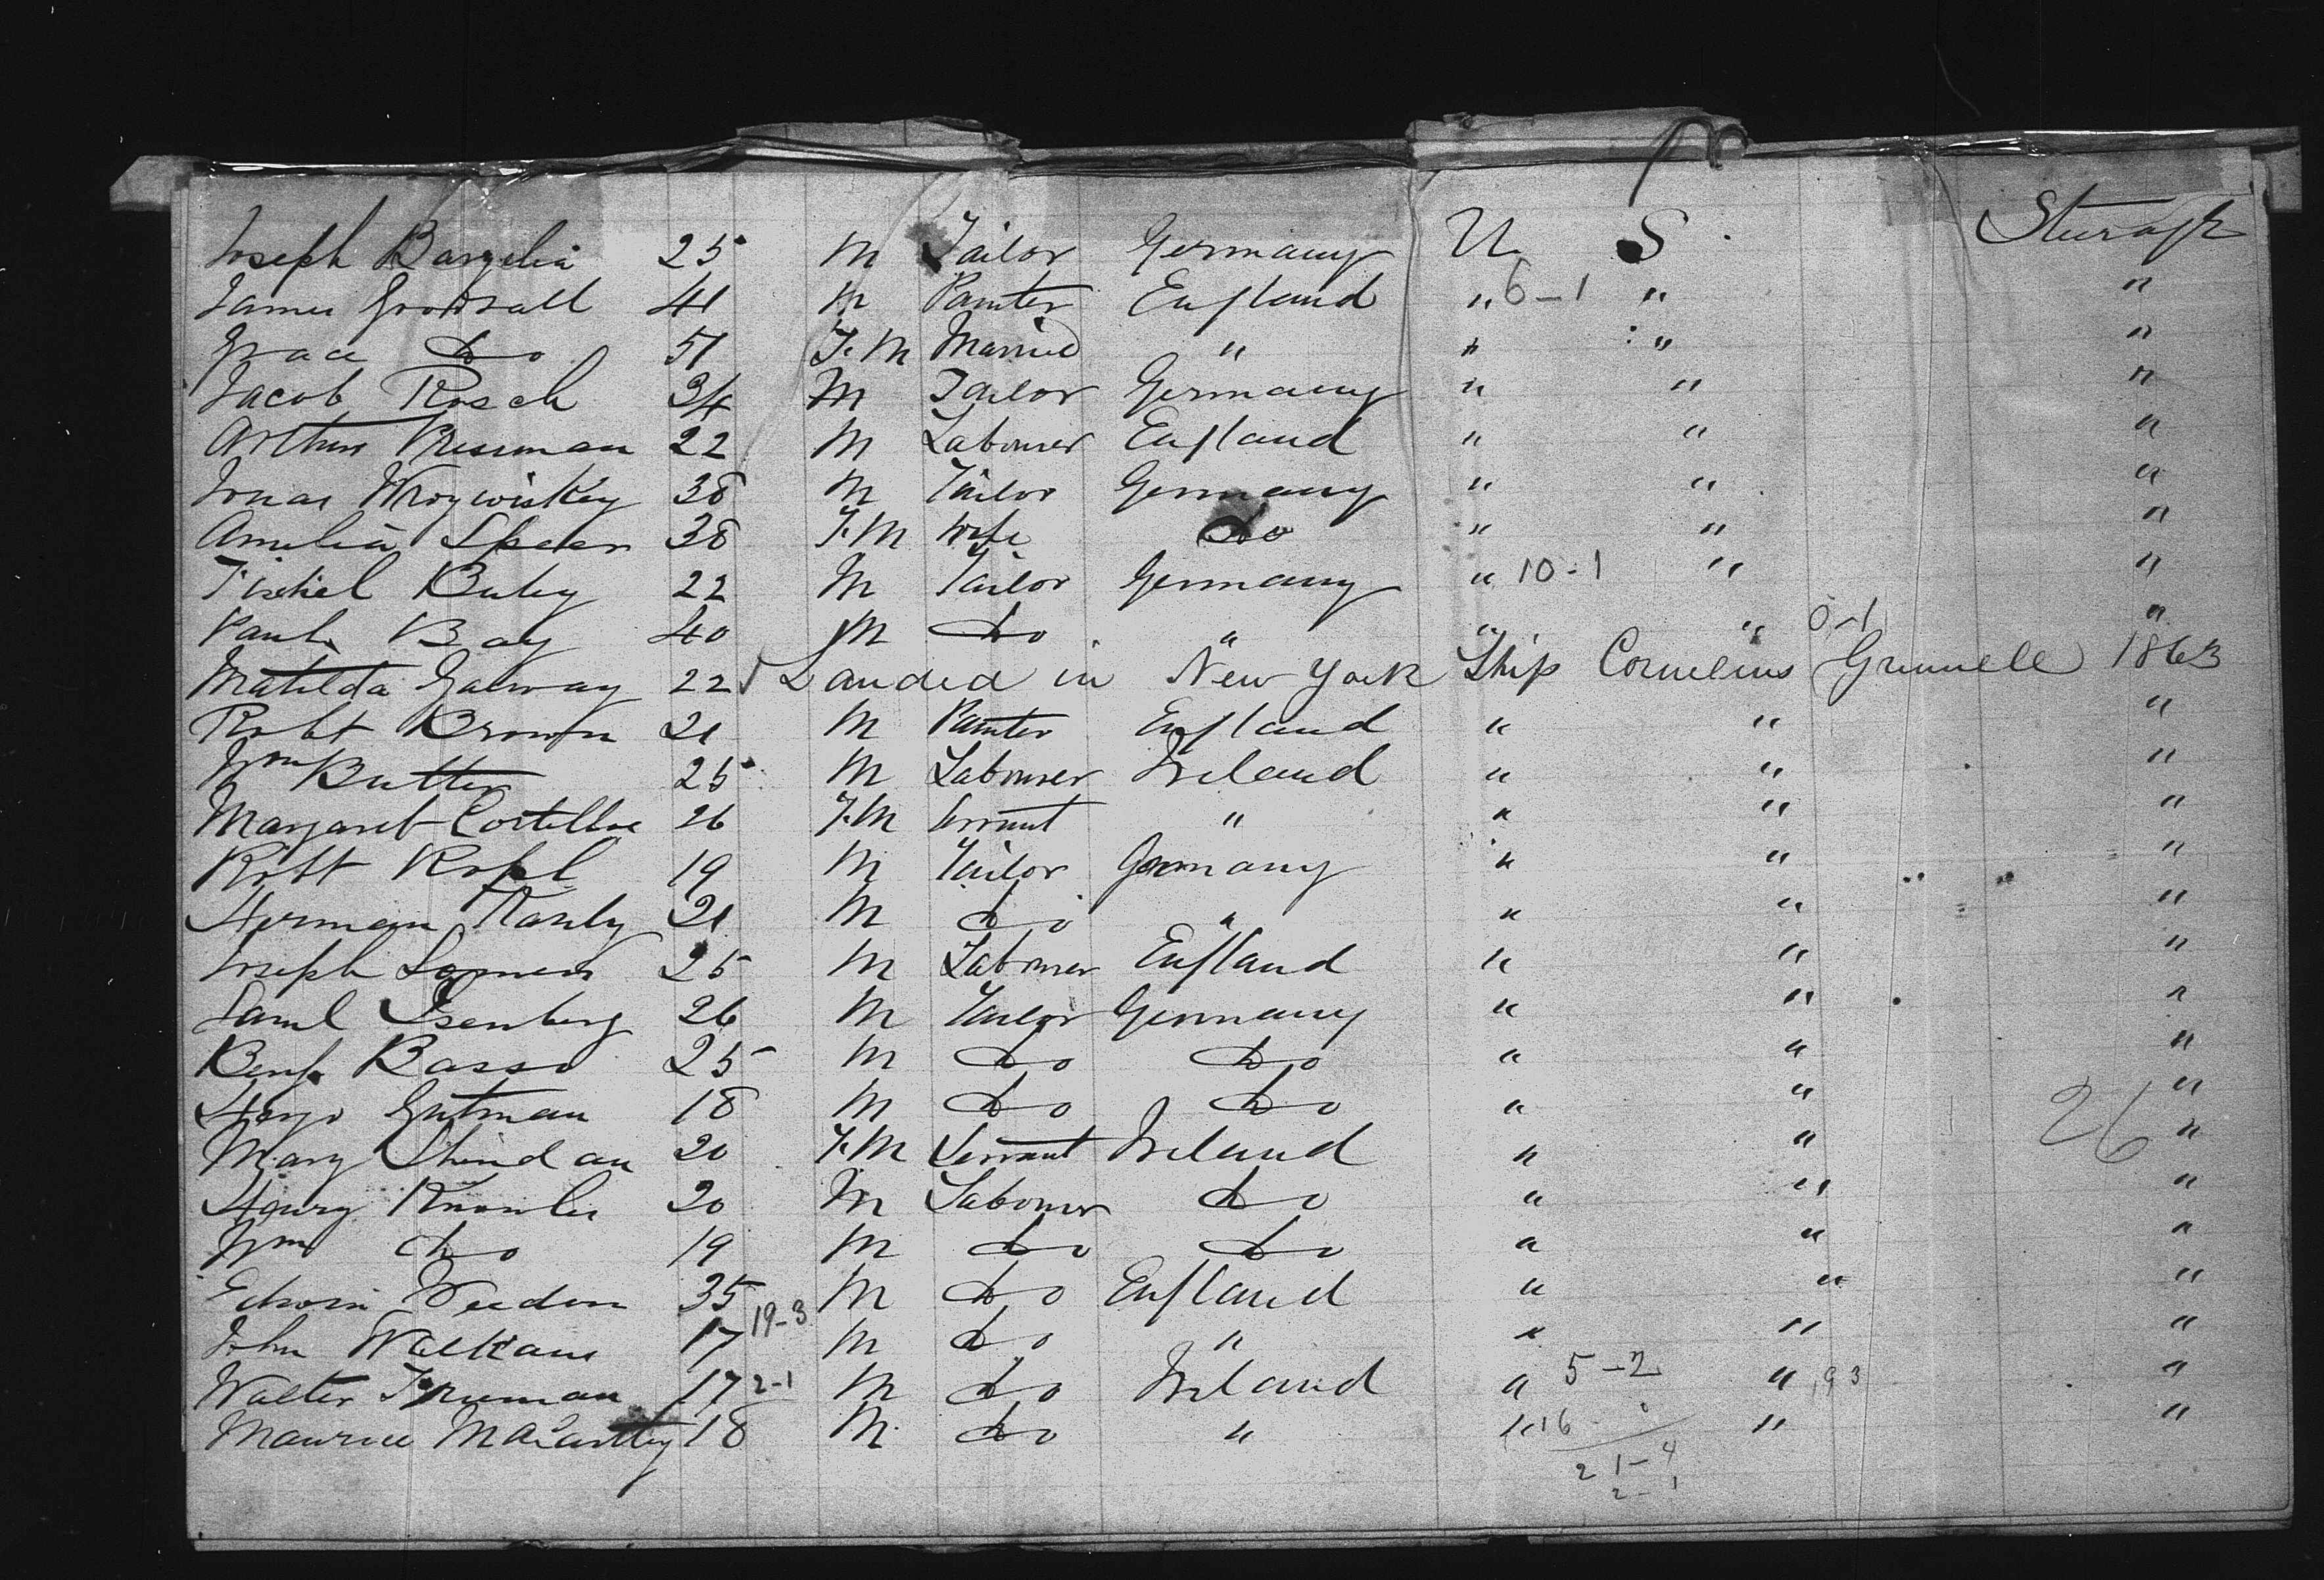 Joseph Bargelia 25 M Tailor Germany U S Steerage
James Goodsall 41 M Painter England " 6-1 " "
Grace Do 51 F.M Married " " " "
Jacob Rosch 34 M Tailor Germany " " "
Arthur 22 M Labourer England " " "
Jonas 38 M Tailor Germany " " "
Amelia Speer 38 F.M Wife Do " " "
Fischel Buley 22 M Tailor Germany " 10-1 " "
Bay 40 M Do " " " 0-1 "
Matilda Galway 22 √ Landed in New York Ship Cornelius Grinnell 1863
Robt Brown 21 M Painter England " " "
Wm Butter 25 M Labourer Ireland " " "
Margaret Costelloe 26 F.M Servant " " " "
Robt 19 M Tailor Germany " " "
Herman 21 M Do " " " "
Joseph 25 M Labourer England " " "
Saml Isenberg 26 M Tailor Germany " " "
Benj. Basso 25 M Do Do " " "
Gutman 18 M Do Do " " "
Mary 20 F.M Servant Ireland " " 26 "
Henry Knowles 20 M Labourer Do " " "
Wm Do 19 M Do Do " " "
Edwin Weedon 35 M Do England " " "
John 17 19-3 M Do " " " "
Walter Freeman 17 2-1 M Do Ireland " 5-2 " 93 "
Maurice McCarthy 18 M Do " " 16 " "
21-4
2-1